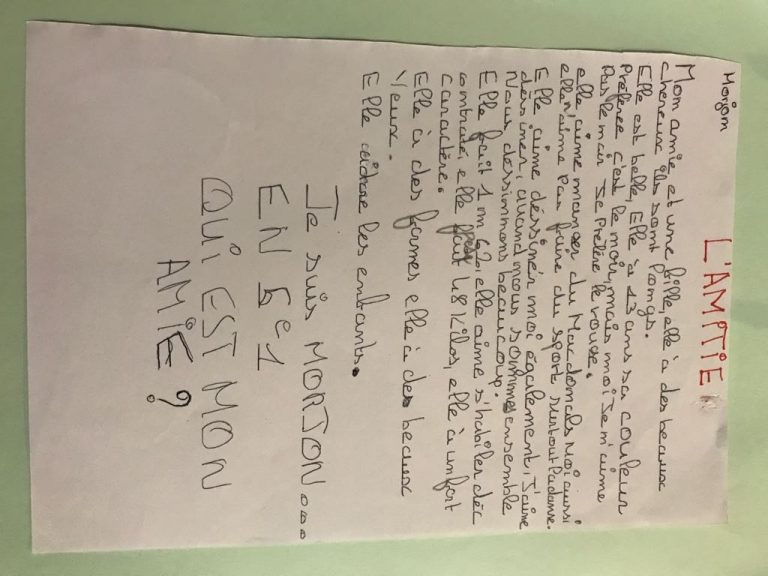 Morjom
L'AMITIE
Mom amie et une fille, elle à des beaux
cheveux ils somt lomgs.
Elle est belle, Elle à 13 ams sa couleur
Préférée c'est le moir, mais moi Je m'aime
Pas le moir Je Préfère le rouge.
elle aime manger du Macdomals Moi aussi
elle m'aime Pas faire du sport surtout La danse.
Elle aime déssiner moi également, J'aime
déssiner, quamd mous sommes ensemble
Nous dessimmoms beaucoup.
Elle fait 1m62, elle aime s'habiler déc
omtracté, elle fait 48 Kilos, elle à um fort
caractère.
Elle à des formes elle à des beaux
Yeux.
Elle adore les enfants.
Je suis MORJON...
EN 5e1
QUI EST MON
AMIE ?